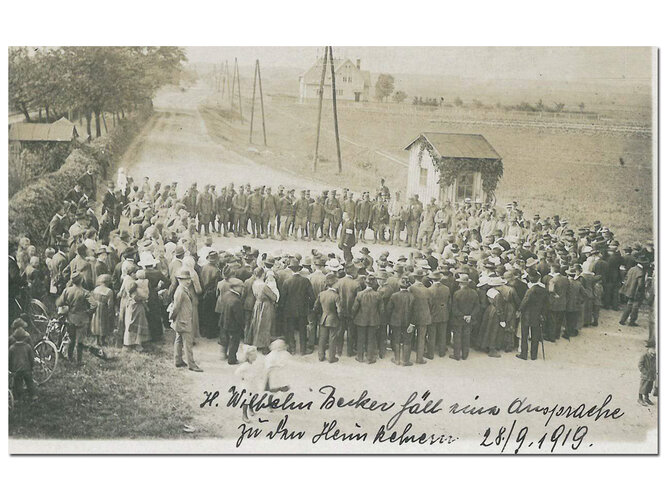 H. Wilhelm Becker hält eine Ansprache
zu den Heimkehrern 28/9. 1919.